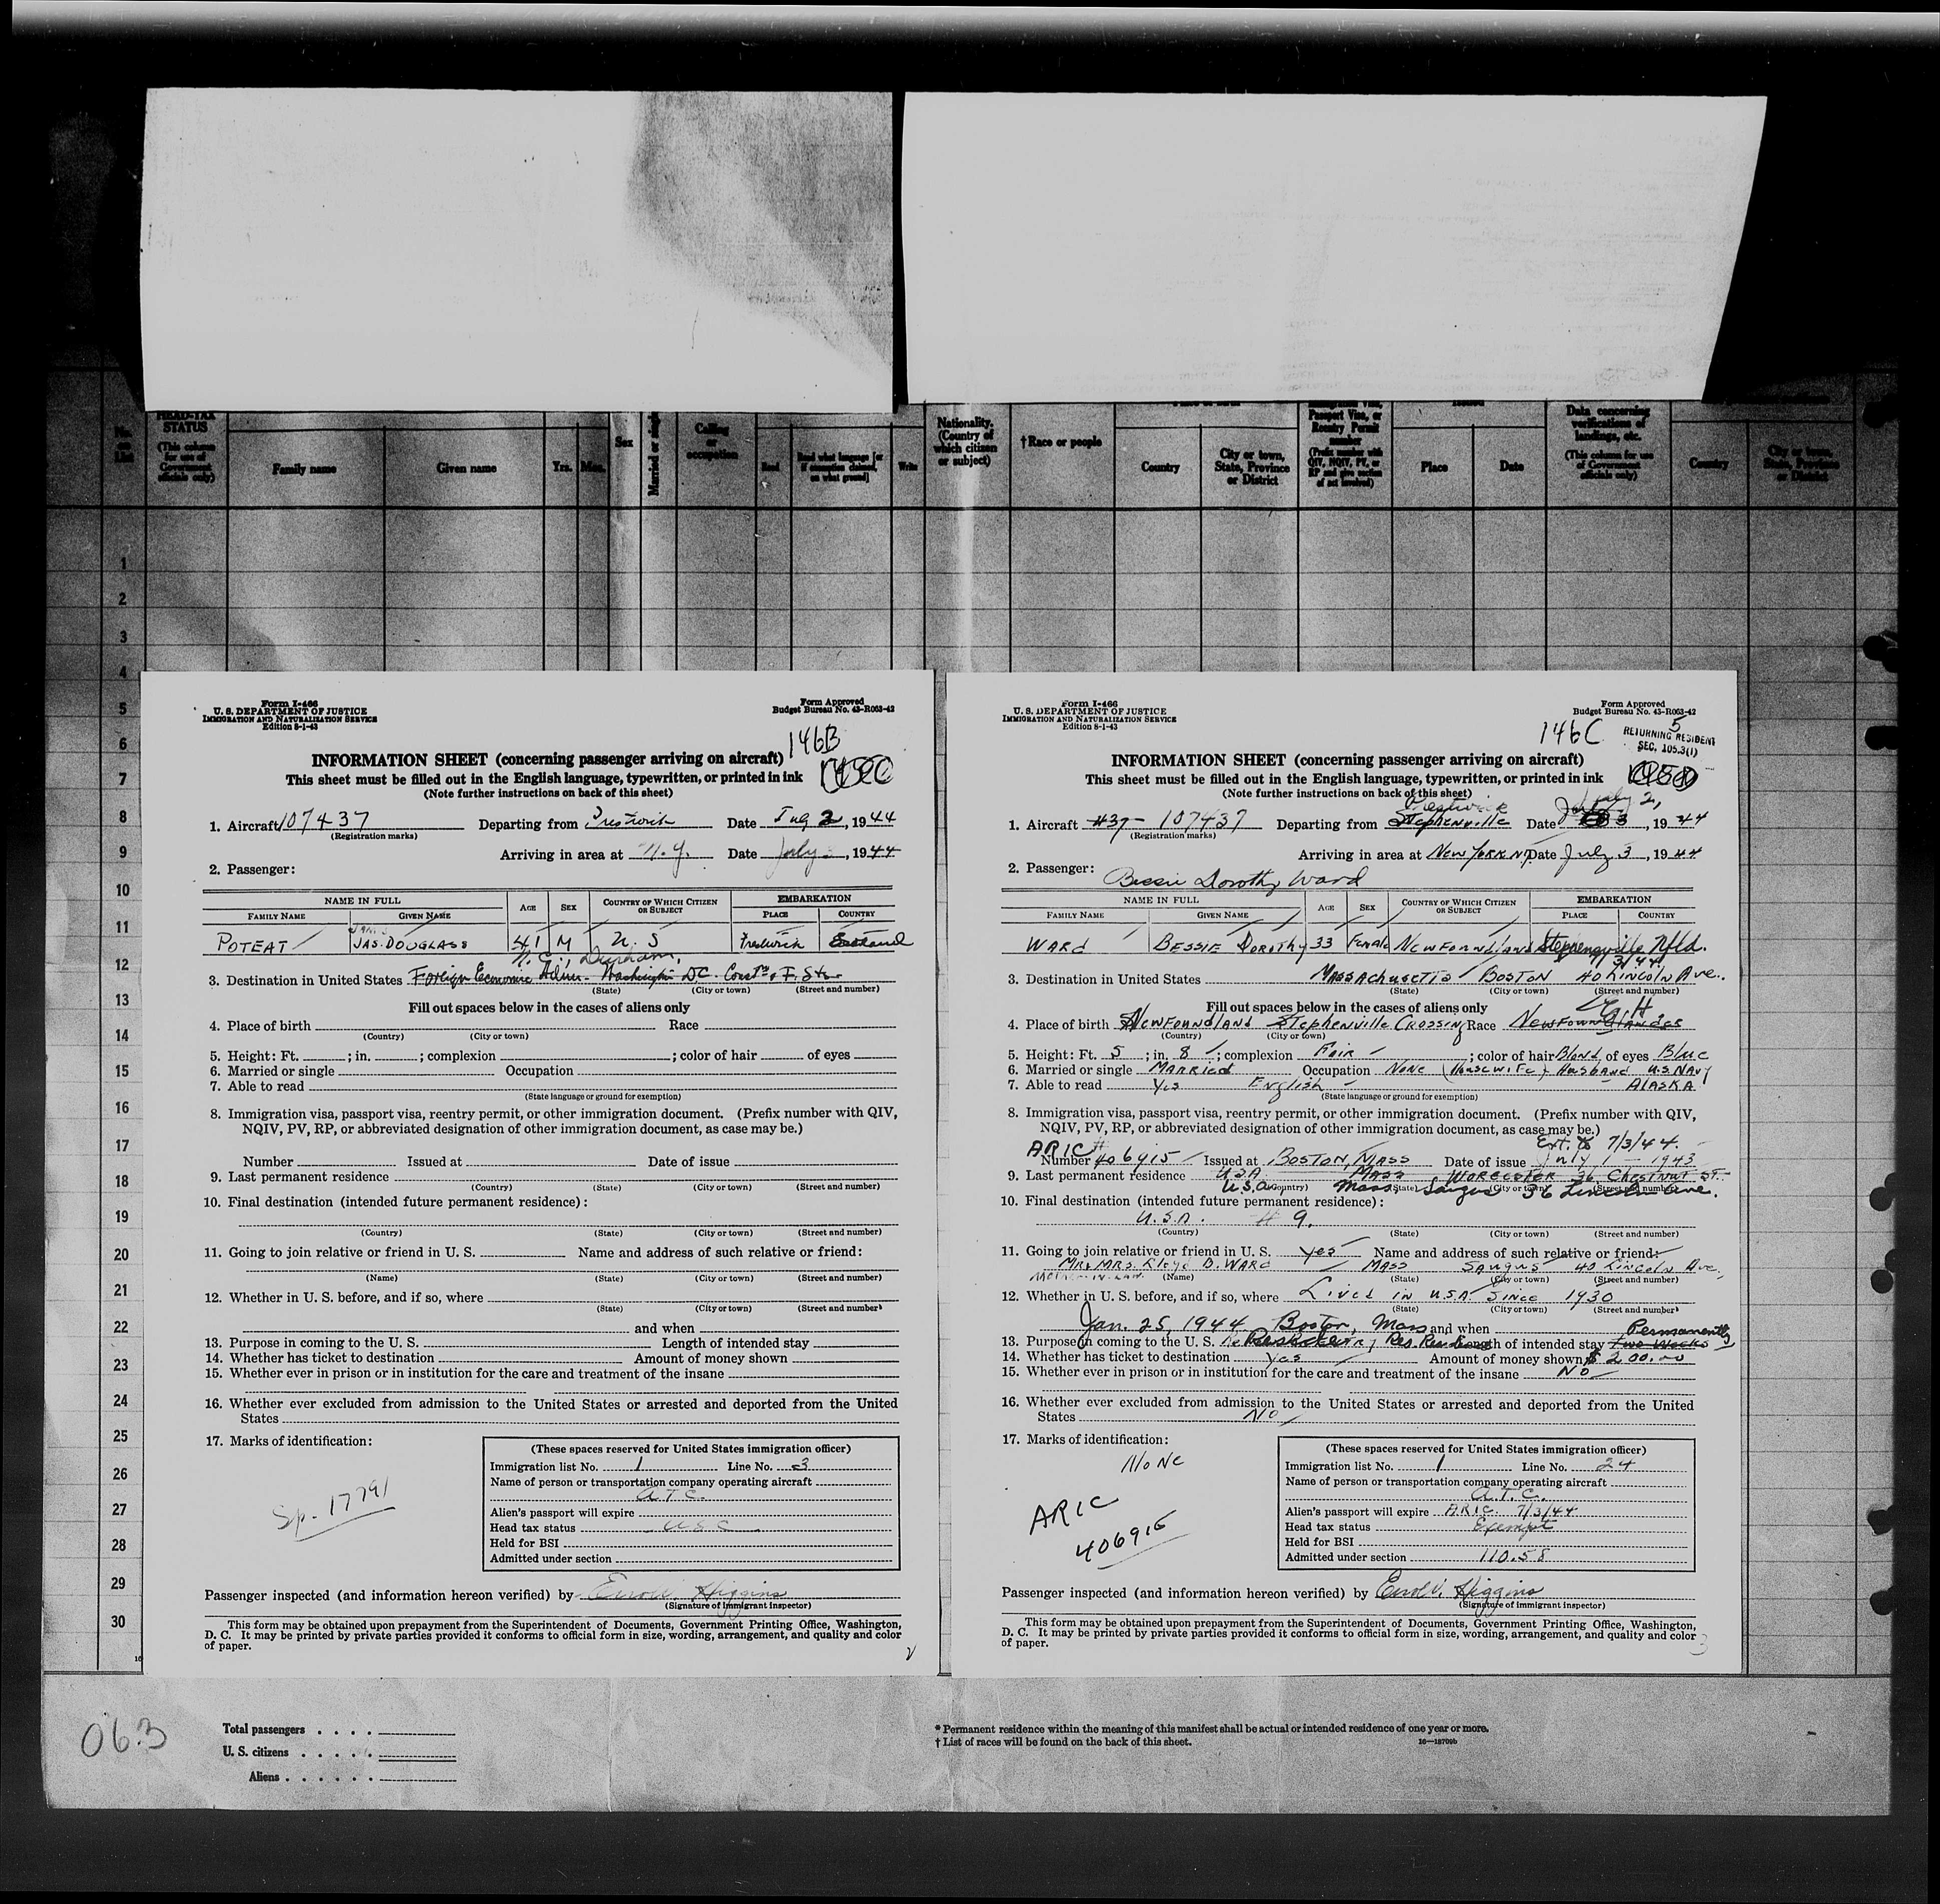 HEAD-TAX STATUS
(This column for use of Government officials only)
Family name
Given name
Yrs.
Mos.
Sex
Married or single
Calling or occupation
Read
Read what language [or if exemption claimed, on what ground]
Write
Nationality. (Country of which citizen or subject)
† Race or people
Country
City or town, State, Province or District
Passport Visa, or Reentry Permit number
(Prefix number with QIV, NQIV, PV, or RP and give section of act involved)
Place
Date
Data concerning verifications of landings, etc.
(This column for use of Government officials only)
Country
City or town, State, Province or District
1
2
3
4
5
6
7
8
9
10
11
12
13
14
15
16
17
18
19
20
21
22
23
24
25
26
27
28
29
30
Form I-466
U. S. DEPARTMENT OF JUSTICE
IMMIGRATION AND NATURALIZATION SERVICE
Edition 8-1-43
Form Approved
Budget Bureau No. 43-R063-42
146B
INFORMATION SHEET (concerning passenger arriving on aircraft)
This sheet must be filled out in the English language, typewritten, or printed in ink
(Note further instructions on back of this sheet)
1. Aircraft 107437 Departing from Prestwick Date 2, 1944
(Registration marks)
Arriving in area at N.Y. Date July , 1944
2. Passenger:
NAME IN FULL
AGE
SEX
COUNTRY OF WHICH CITIZEN OR SUBJECT
EMBARKATION
FAMILY NAME
GIVEN NAME
PLACE
COUNTRY
POTEAT JAS. DOUGLASS 41 M U. S Prestwick Scotland
N.C., Durham,
3. Destination in United States Foreign Economic Admin- Washington D.C.
(State) (City or town) (Street and number)
Fill out spaces below in the cases of aliens only
4. Place of birth Race
(Country) (City or town)
5. Height: Ft. ; in. ; complexion ; color of hair of eyes
6. Married or single Occupation
7. Able to read
(State language or ground for exemption)
8. Immigration visa, passport visa, reentry permit, or other immigration document. (Prefix number with QIV,
NQIV, PV, RP, or abbreviated designation of other immigration document, as case may be.)
Number Issued at Date of issue
9. Last permanent residence
(Country) (State) (City or town) (Street and number)
10. Final destination (intended future permanent residence):
(Country) (State) (City or town) (Street and number)
11. Going to join relative or friend in U. S. Name and address of such relative or friend:
(Name) (State) (City or town) (Street and number)
12. Whether in U. S. before, and if so, where
(State) (City or town) (Street and number)
and when
13. Purpose in coming to the U. S. Length of intended stay
14. Whether has ticket to destination Amount of money shown
15. Whether ever in prison or in institution for the care and treatment of the insane
16. Whether ever excluded from admission to the United States or arrested and deported from the United
States
17. Marks of identification:
Sp. 17791
(These spaces reserved for United States immigration officer)
Immigration list No. 1 Line No. 3
Name of person or transportation company operating aircraft
A.T.C.
Alien's passport will expire
Head tax status USC
Held for BSI
Admitted under section
Passenger inspected (and information hereon verified) by Errol V. Higgins
(Signature of immigrant inspector)
This form may be obtained upon prepayment from the Superintendent of Documents, Government Printing Office, Washington,
D. C. It may be printed by private parties provided it conforms to official form in size, wording, arrangement, and quality and color
of paper.
Form I-466
U. S. DEPARTMENT OF JUSTICE
IMMIGRATION AND NATURALIZATION SERVICE
Edition 8-1-43
Form Approved
Budget Bureau No. 43-R063-42
146C
5
RETURNING RESIDENT
SEC. 105.3(1)
INFORMATION SHEET (concerning passenger arriving on aircraft)
This sheet must be filled out in the English language, typewritten, or printed in ink
(Note further instructions on back of this sheet)
Prestwick July 2,
1. Aircraft #37- 107437 Departing from Stephenville Date 3, 1944
(Registration marks)
Arriving in area at NEW YORK NY Date July 3, 1944
2. Passenger: Bessie Dorothy Ward
NAME IN FULL
AGE
SEX
COUNTRY OF WHICH CITIZEN OR SUBJECT
EMBARKATION
FAMILY NAME
GIVEN NAME
PLACE
COUNTRY
WARD BESSIE DOROTHY 33 Female NEWFOUNDLAND Stephenville Nfld.
7/3/44
3. Destination in United States MASSACHUSETTS BOSTON 40 LINCOLN Ave.
(State) (City or town) (Street and number)
Fill out spaces below in the cases of aliens only
4. Place of birth NEWFOUNDLAND Stephenville CROSSING Race NEWFOUNDLANDER
(Country) (City or town)
5. Height: Ft. 5 ; in. 8 ; complexion Fair ; color of hair Blond of eyes Blue
6. Married or single MARRIED Occupation NONE (HOUSEWIFE) HUSBAND U.S. NAVY
7. Able to read Yes English ALASKA
(State language or ground for exemption)
8. Immigration visa, passport visa, reentry permit, or other immigration document. (Prefix number with QIV,
NQIV, PV, RP, or abbreviated designation of other immigration document, as case may be.)
ARIC # Ext. to 7/3/44.
Number 406915 Issued at BOSTON, MASS Date of issue July 1 - 1943
9. Last permanent residence U.S.A. MASS WORCESTER 36 CHESTNUT ST.
(Country) (State) (City or town) (Street and number)
U.S.A. Mass. Saugus 36 Lincoln Ave.
10. Final destination (intended future permanent residence):
U.S.A. # 9.
(Country) (State) (City or town) (Street and number)
11. Going to join relative or friend in U. S. Yes Name and address of such relative or friend:
MR & MRS. Lloyd D. WARD MASS Saugus 40 Lincoln Ave.,
(Name) (State) (City or town) (Street and number)
12. Whether in U. S. before, and if so, where Lived IN U.S.A. Since 1930
(State) (City or town) (Street and number)
Jan. 25, 1944 Boston, Mass and when
Permanently
13. Purpose in coming to the U. S. Length of intended stay Two Weeks
14. Whether has ticket to destination Yes Amount of money shown $ 200.00
15. Whether ever in prison or in institution for the care and treatment of the insane NO
16. Whether ever excluded from admission to the United States or arrested and deported from the United
States NO
17. Marks of identification:
NONE
ARIC
406915
(These spaces reserved for United States immigration officer)
Immigration list No. 1 Line No. 24
Name of person or transportation company operating aircraft
A.T.C.
Alien's passport will expire ARIC 7/3/44
Head tax status Exempt
Held for BSI
Admitted under section 110.58
Passenger inspected (and information hereon verified) by Errol V. Higgins
(Signature of immigrant inspector)
This form may be obtained upon prepayment from the Superintendent of Documents, Government Printing Office, Washington,
D. C. It may be printed by private parties provided it conforms to official form in size, wording, arrangement, and quality and color
of paper.
3
063
Total passengers . . . .
U. S. citizens . . . . .
Aliens . . . . . .
* Permanent residence within the meaning of this manifest shall be actual or intended residence of one year or more.
† List of races will be found on the back of this sheet.
16—18709b